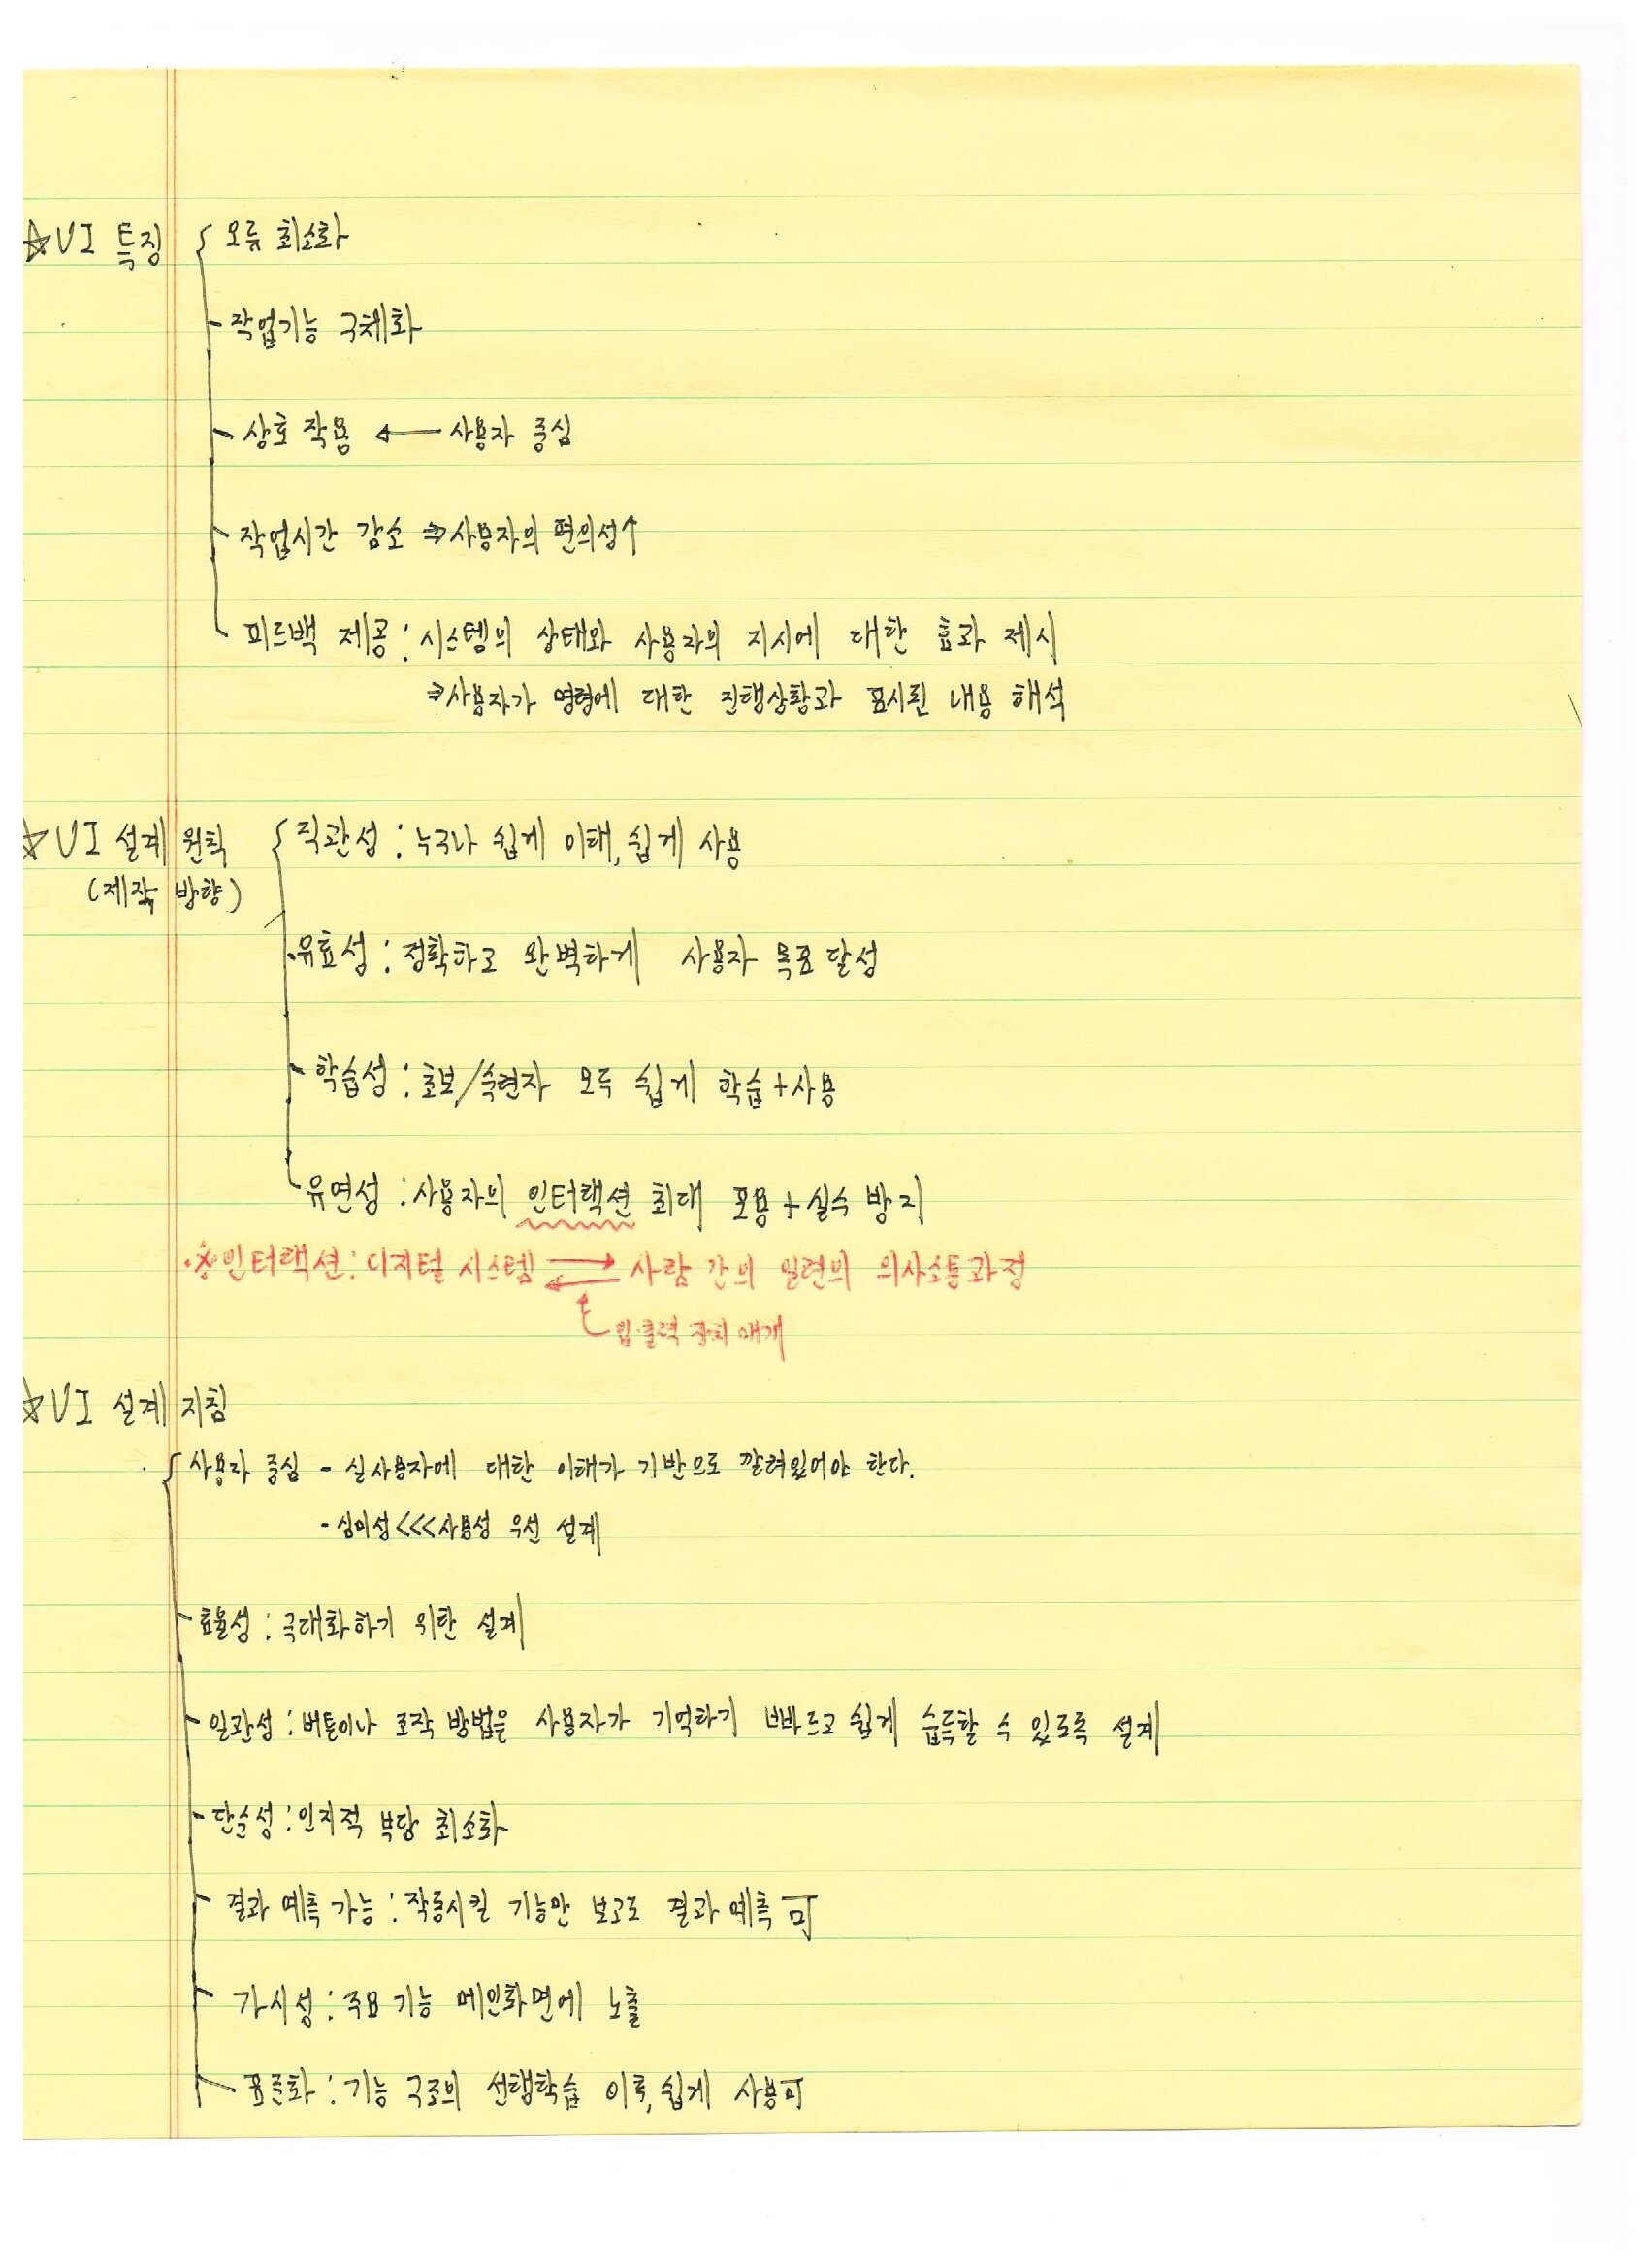 ☆UI 특징 { 오류 최소화
- 작업기능 구체화
- 상호 작용 ← 사용자 중심
- 작업시간 감소 ⇒ 사용자의 편의성↑
피드백 제공 : 시스템의 상태와 사용자의 지시에 대한 효과 제시
⇒ 사용자가 명령에 대한 진행상황과 표시된 내용 해석
☆UI 설계 원칙 { 직관성 : 누구나 쉽게 이해, 쉽게 사용
(제작 방향)
유효성 : 정확하고 완벽하게 사용자 목표 달성
- 학습성 : 초보/숙련자 모두 쉽게 학습+사용
유연성 : 사용자의 인터랙션 최대 포용 + 실수 방지
※인터랙션 : 디지털 시스템 ⇄ 사람 간의 일련의 의사소통과정
↑ 입·출력 장치 매개
☆UI 설계 지침
{ 사용자 중심 - 실사용자에 대한 이해가 기반으로 깔려있어야 한다.
- 심미성 <<< 사용성 우선 설계
- 효율성 : 극대화하기 위한 설계
- 일관성 : 버튼이나 조작 방법을 사용자가 기억하기 빠르고 쉽게 습득할 수 있도록 설계
- 단순성 : 인지적 부담 최소화
- 결과 예측 가능 : 작동시킬 기능만 보고도 결과 예측 可
- 가시성 : 주요 기능 메인화면에 노출
- 표준화 : 기능 구조의 선행학습 이후, 쉽게 사용可